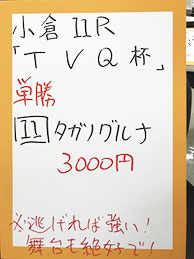 小倉11R
「TVQ杯」
単勝
11タガノグルナ
3000円
※逃げれば強い!
舞台も絶好で!